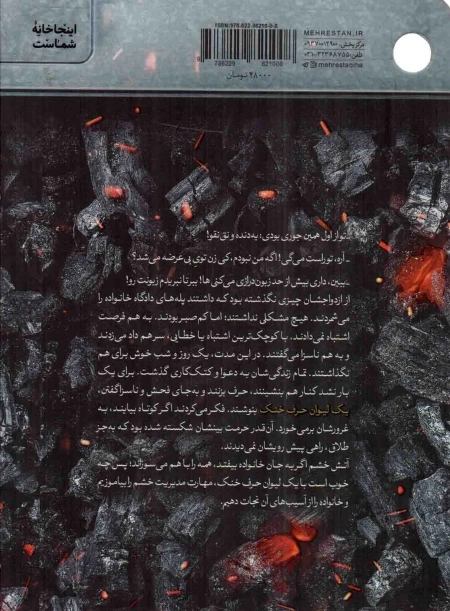 اینجا خانهٔ
شماست
ISBN: 978-622-
MEHRESTAN.IR
مرکز پخش:
تلفن:
mehrestaniha
۲۸۰۰۰ تومان
ـ تو از اول همین جوری بودی؛ یه‌دنده و تق‌نقو!
ـ آره، تو راست می‌گی! اگه من نبودم، کی زن توی بی‌عرضه می‌شد؟
ـ ببین، داری بیش از حد زبون‌درازی می‌کنی‌ها! ببر تا نبریدم زبونت رو!
از ازدواجشان چیزی نگذشته بود که داشتند پله‌های دادگاه خانواده را
می‌شمردند. هیچ مشکلی نداشتند؛ اما کم صبر بودند. به هم فرصت
اشتباه نمی‌دادند. با کوچک‌ترین اشتباه یا خطایی، سر هم داد می‌زدند
و به هم ناسزا می‌گفتند. در این مدت، یک روز و شب خوش برای هم
نگذاشتند. تمام زندگی‌شان به دعوا و کتک‌کاری گذشت. برای یک
بار نشد کنار هم بنشینند، حرف بزنند و به‌جای فحش و ناسزا گفتن،
یک لیوان حرف خنک بنوشند. فکر می‌کردند اگر کوتاه بیایند، به
غرورشان برمی‌خورد. آن‌قدر حرمت بینشان شکسته شده بود که به‌جز
طلاق، راهی پیش رویشان نمی‌دیدند.
آتش خشم اگر به جان خانواده بیفتد، همه را با هم می‌سوزاند؛ پس چه
خوب است با یک لیوان حرف خنک، مهارت مدیریت خشم را بیاموزیم
و خانواده را از آسیب‌های آن نجات دهیم.